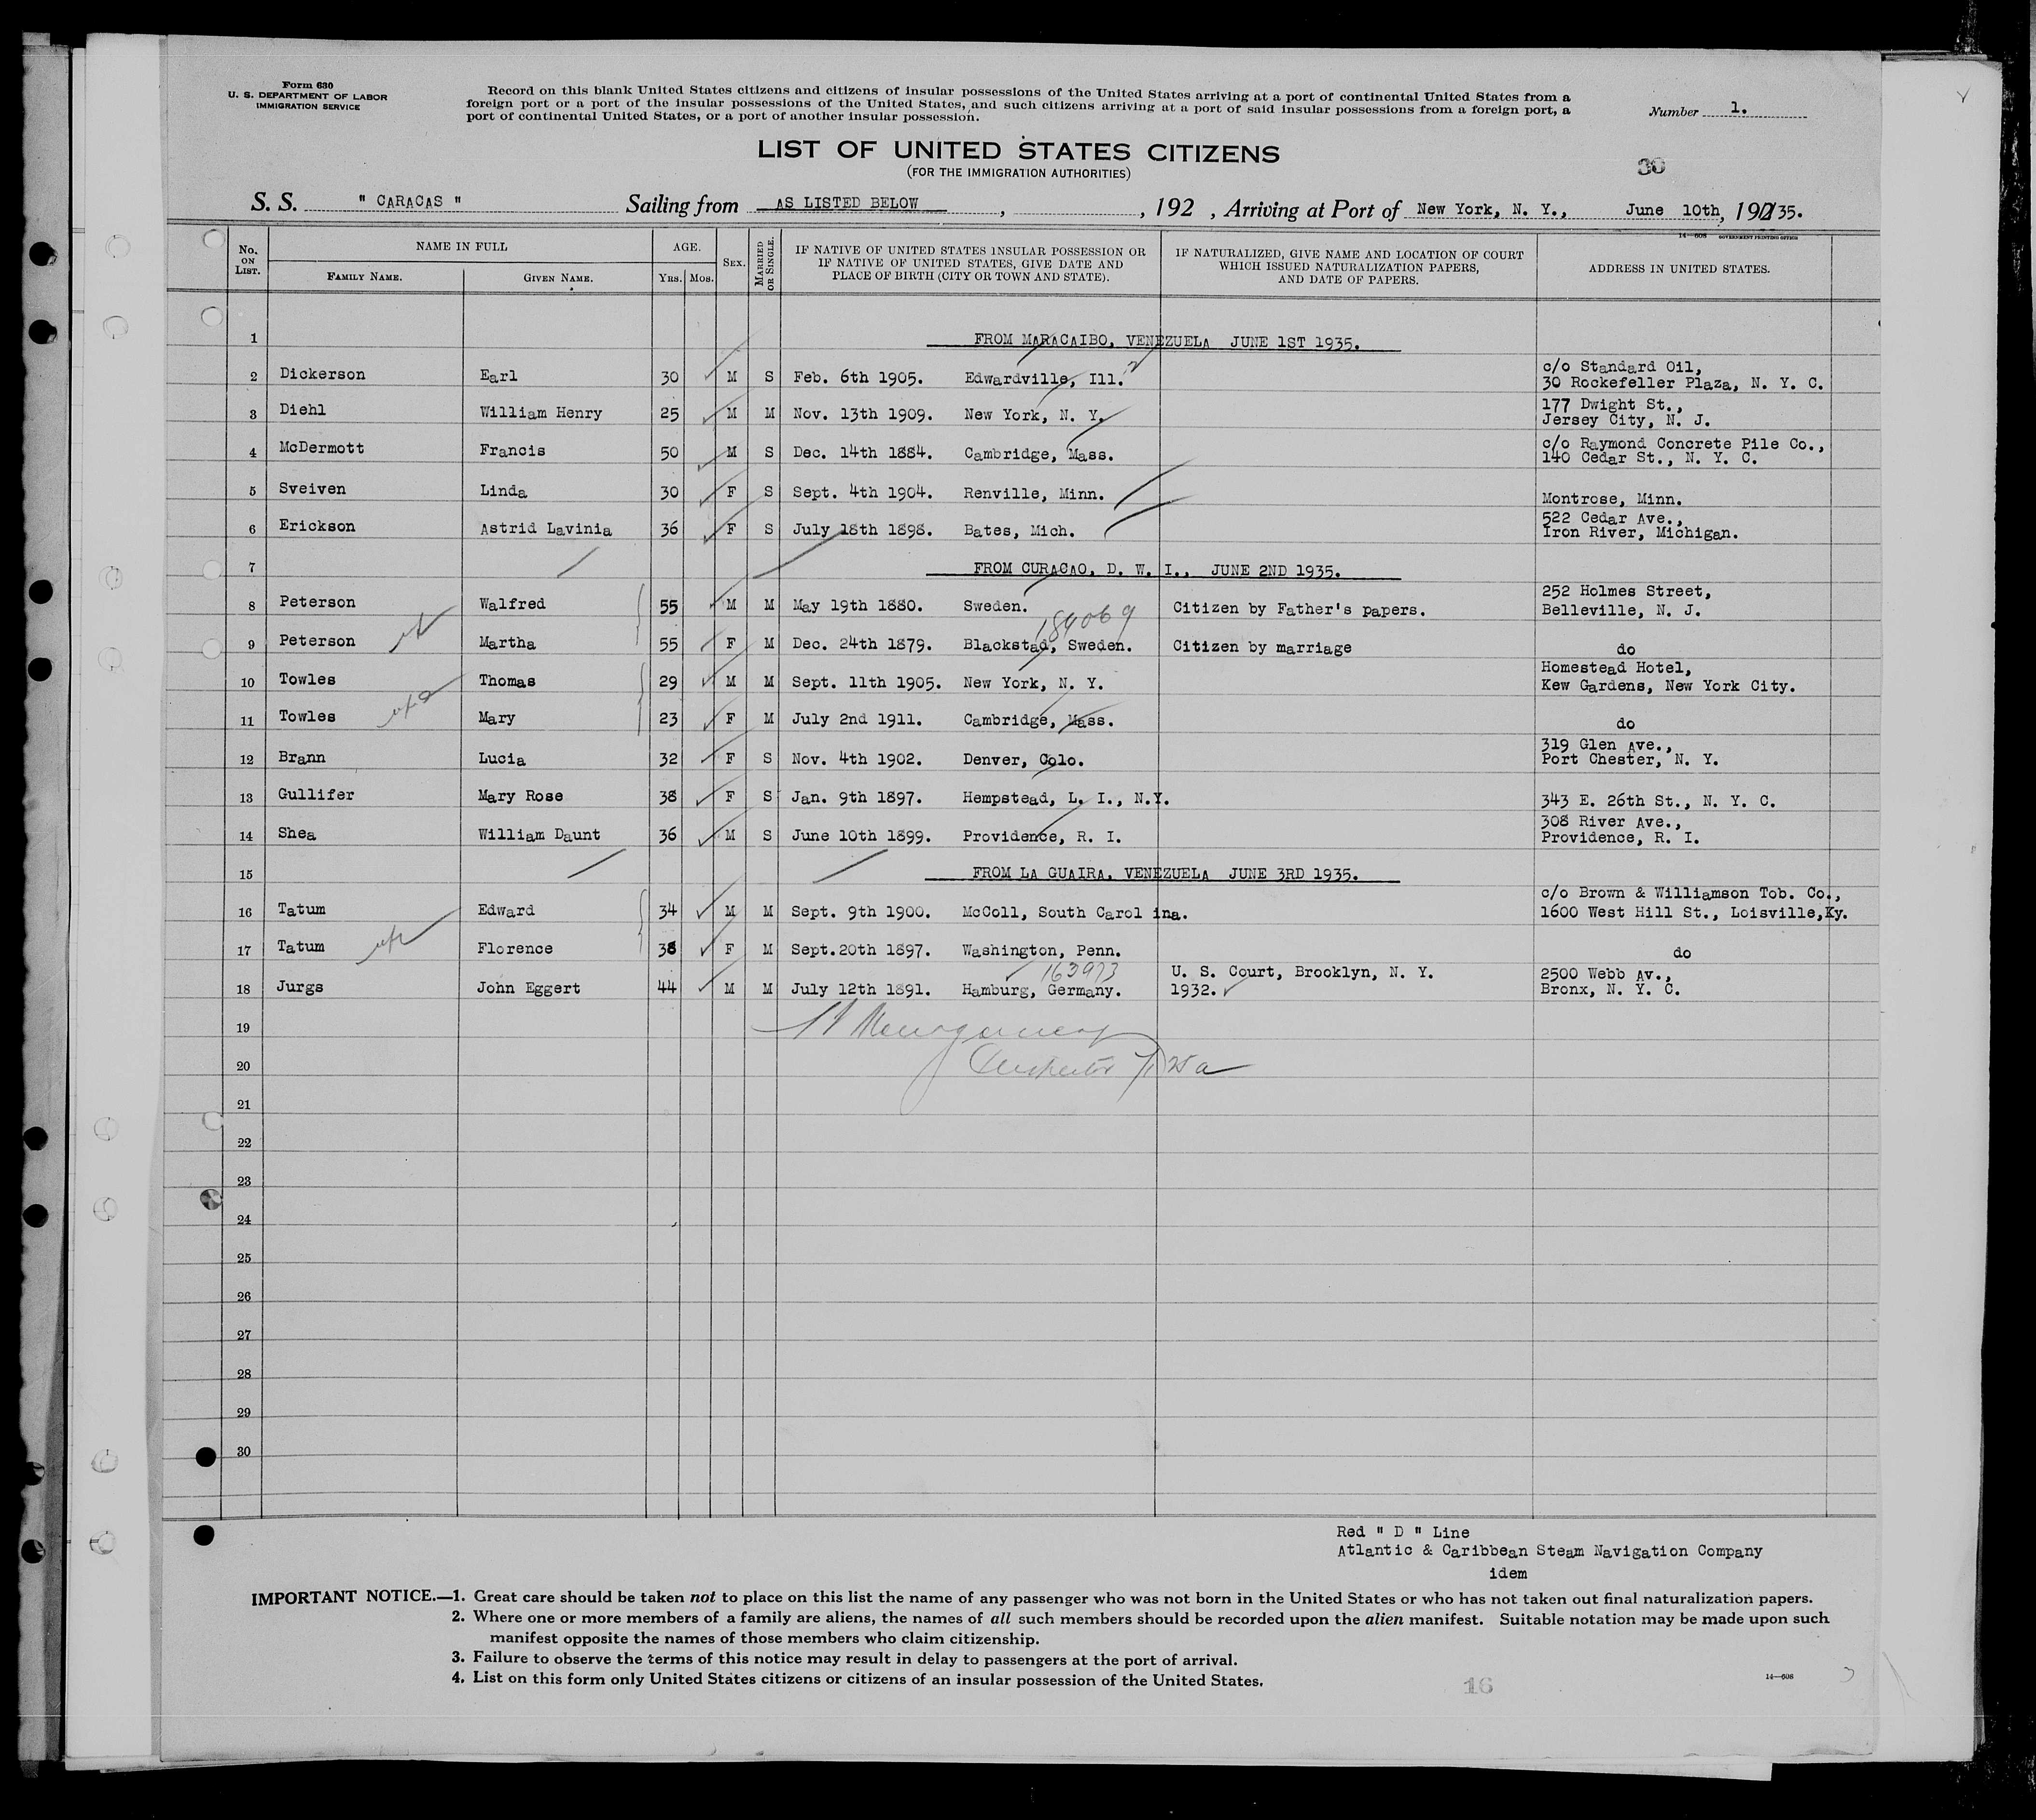 Form 630
U. S. DEPARTMENT OF LABOR
IMMIGRATION SERVICE
Record on this blank United States citizens and citizens of insular possessions of the United States arriving at a port of continental United States from a
foreign port or a port of the insular possessions of the United States, and such citizens arriving at a port of said insular possessions from a foreign port, a
port of continental United States, or a port of another insular possession.
Number 1.
LIST OF UNITED STATES CITIZENS
(FOR THE IMMIGRATION AUTHORITIES)
30
S. S. " CARACAS " Sailing from AS LISTED BELOW , , 192 , Arriving at Port of New York, N. Y., June 10th, 192/35.
14—608 GOVERNMENT PRINTING OFFICE
No. ON LIST. NAME IN FULL FAMILY NAME. GIVEN NAME. AGE. YRS. MOS. SEX. MARRIED OR SINGLE. IF NATIVE OF UNITED STATES INSULAR POSSESSION OR IF NATIVE OF UNITED STATES, GIVE DATE AND PLACE OF BIRTH (CITY OR TOWN AND STATE). IF NATURALIZED, GIVE NAME AND LOCATION OF COURT WHICH ISSUED NATURALIZATION PAPERS, AND DATE OF PAPERS. ADDRESS IN UNITED STATES.
1 FROM MARACAIBO, VENEZUELA JUNE 1ST 1935.
2 Dickerson Earl 30 M S Feb. 6th 1905. Edwardville, Ill. c/o Standard Oil,
30 Rockefeller Plaza, N. Y. C.
3 Diehl William Henry 25 M M Nov. 13th 1909. New York, N. Y. 177 Dwight St.,
Jersey City, N. J.
4 McDermott Francis 50 M S Dec. 14th 1884. Cambridge, Mass. c/o Raymond Concrete Pile Co.,
140 Cedar St., N. Y. C.
5 Sveiven Linda 30 F S Sept. 4th 1904. Renville, Minn. Montrose, Minn.
6 Erickson Astrid Lavinia 36 F S July 18th 1898. Bates, Mich. 522 Cedar Ave.,
Iron River, Michigan.
7 FROM CURACAO, D. W. I., JUNE 2ND 1935.
8 Peterson Walfred 55 M M May 19th 1880. Sweden. Citizen by Father's papers. 252 Holmes Street,
Belleville, N. J.
184069
9 Peterson Martha 55 F M Dec. 24th 1879. Blackstad, Sweden. Citizen by marriage do
10 Towles Thomas 29 M M Sept. 11th 1905. New York, N. Y. Homestead Hotel,
Kew Gardens, New York City.
11 Towles Mary 23 F M July 2nd 1911. Cambridge, Mass. do
12 Brann Lucia 32 F S Nov. 4th 1902. Denver, Colo. 319 Glen Ave.,
Port Chester, N. Y.
13 Gullifer Mary Rose 38 F S Jan. 9th 1897. Hempstead, L. I., N.Y. 343 E. 26th St., N. Y. C.
14 Shea William Daunt 36 M S June 10th 1899. Providence, R. I. 308 River Ave.,
Providence, R. I.
15 FROM LA GUAIRA, VENEZUELA JUNE 3RD 1935.
16 Tatum Edward 34 M M Sept. 9th 1900. McColl, South Carol ina. c/o Brown & Williamson Tob. Co.,
1600 West Hill St., Loisville,Ky.
17 Tatum Florence 38 F M Sept.20th 1897. Washington, Penn. do
163973
18 Jurgs John Eggert 44 M M July 12th 1891. Hamburg, Germany. U. S. Court, Brooklyn, N. Y.
1932. 2500 Webb Av.,
Bronx, N. Y. C.
19
20
21
22
23
24
25
26
27
28
29
30
Red " D " Line
Atlantic & Caribbean Steam Navigation Company
idem
IMPORTANT NOTICE.—1. Great care should be taken not to place on this list the name of any passenger who was not born in the United States or who has not taken out final naturalization papers.
2. Where one or more members of a family are aliens, the names of all such members should be recorded upon the alien manifest. Suitable notation may be made upon such
manifest opposite the names of those members who claim citizenship.
3. Failure to observe the terms of this notice may result in delay to passengers at the port of arrival.
4. List on this form only United States citizens or citizens of an insular possession of the United States.
16
14—608